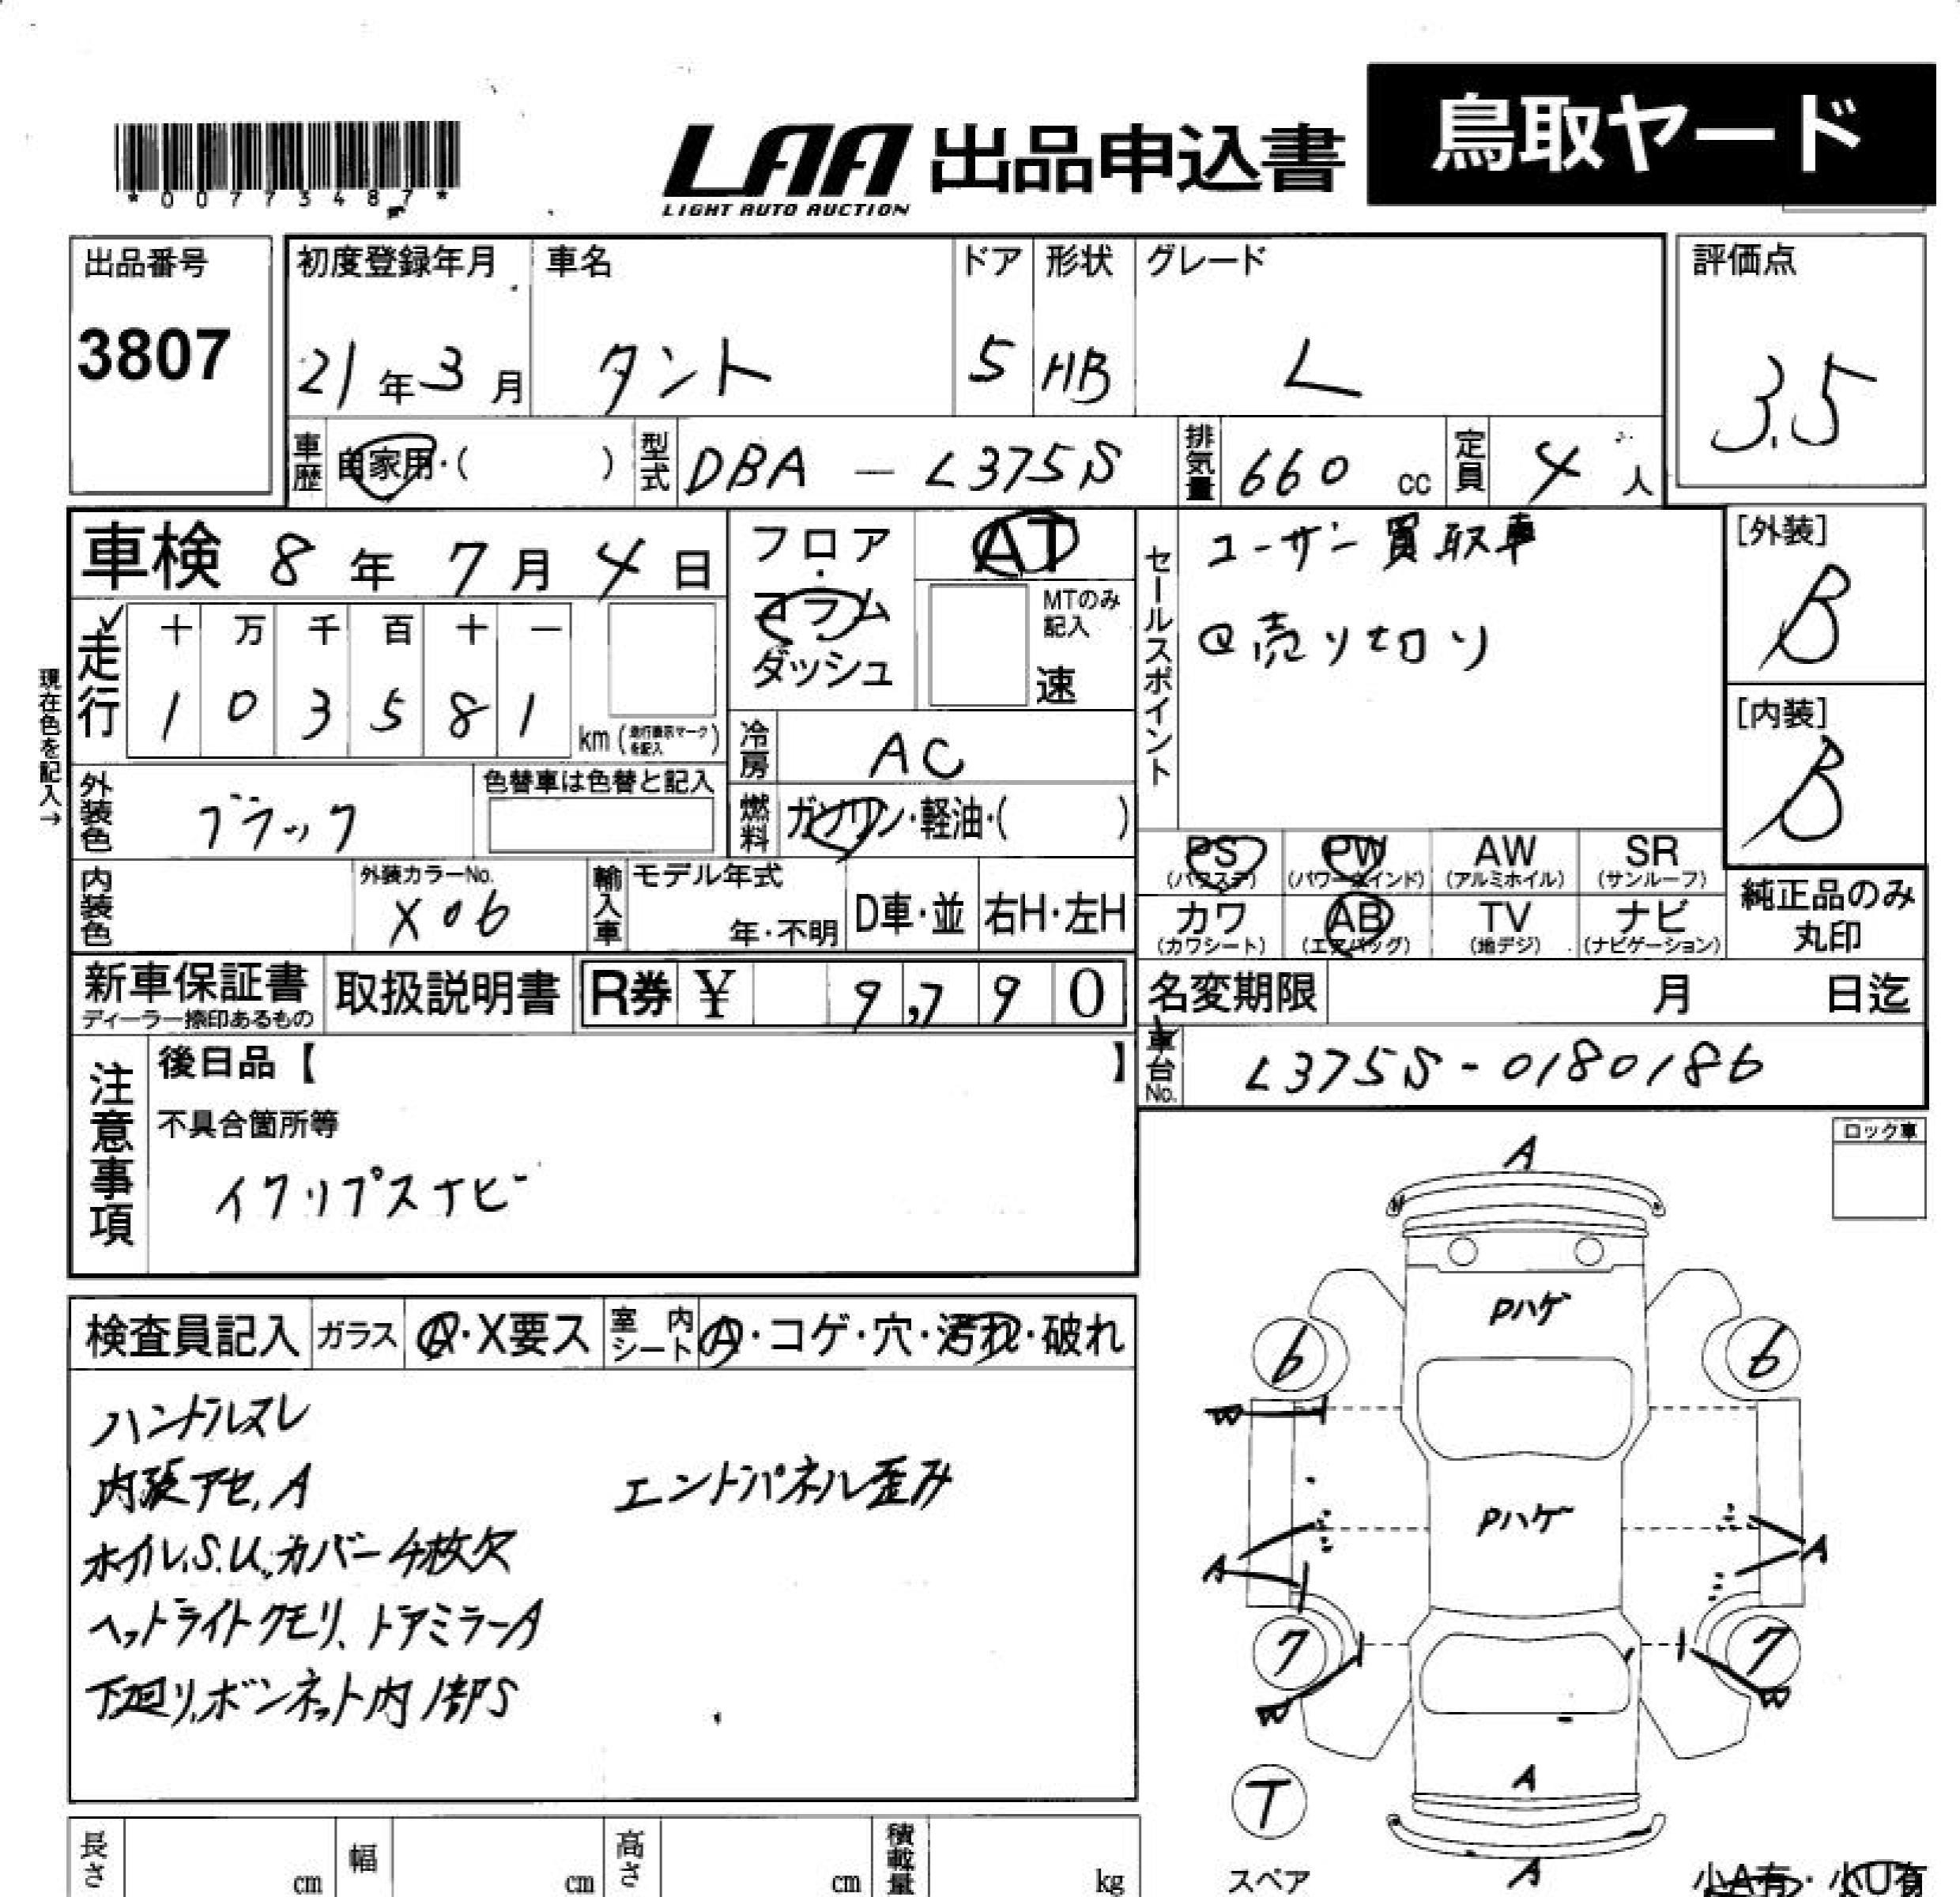 鳥取ヤード
LAA 出品申込書
LIGHT AUTO AUCTION
*00773487*
出品番号
3807
初度登録年月
21年3月
車名
タント
ドア
5
形状
HB
グレード
L
評価点
3.5
車歴 自家用・( )
型式 DBA-L375S
排気量 660 cc
定員 4 人
車検 8年7月4日
フロア・コラム ダッシュ
AT
MTのみ記入
速
セールスポイント
ユーザー買取車
@売り切り
[外装]
B
[内装]
B
現在色を記入→
走行
十 万 千 百 十 一
1 0 3 5 8 1
km(走行表示マークを記入)
冷房 AC
燃料 ガソリン・軽油・( )
外装色 ブラック
色替車は色替と記入
内装色
外装カラーNo.
X06
輸入車
モデル年式
年・不明
D車・並
右H・左H
PS (パワステ)
PW (パワーウインド)
AW (アルミホイル)
SR (サンルーフ)
カワ (カワシート)
AB (エアバッグ)
TV (地デジ)
ナビ (ナビゲーション)
純正品のみ丸印
新車保証書
ディーラー捺印あるもの
取扱説明書
R券 ¥ 9,790
名変期限 月 日迄
車台No. L375S-0180186
注意事項
後日品【 】
不具合箇所等
イクリプスナビ
ロック車
検査員記入
ガラス A・X要ス
室内シート A・コゲ・穴・汚れ・破れ
ハンドルスレ
内張アセ,A
エンドパネル歪み
ホイル,S.U,カバー4枚欠
ヘッドライトクモリ、ドアミラーA
下廻り,ボンネット内1部S
A
Pハゲ
6
6
W
Pハゲ
A
A
7
7
W
W
A
T
スペア
A
小A有・小U有
長さ cm
幅 cm
高さ cm
積載量 kg